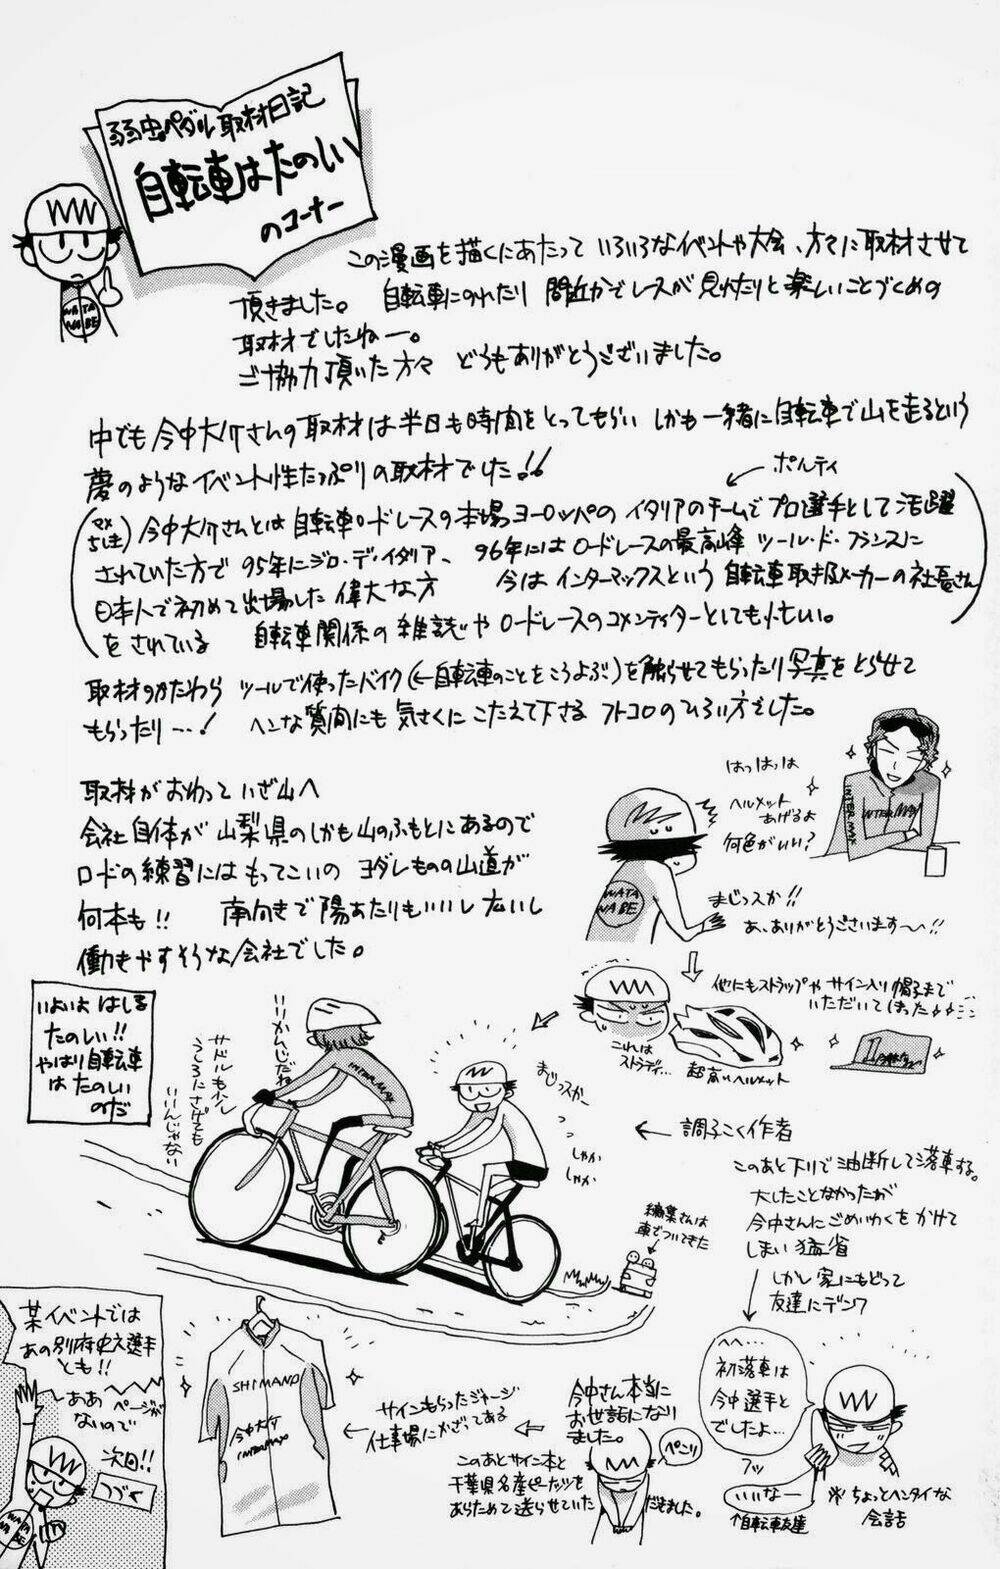 弱虫ペダル取材日記
自転車はたのしい
のコーナー
WATA
NABE
この漫画を描くにあたって いろいろなイベントや大会、方々に取材させて
頂きました。 自転車にのれたり 間近かでレースが見れたりと楽しいことづくめの
取材でしたねー。
ご協力頂いた方々 どうもありがとうございました。
中でも今中大介さんの取材は半日も時間をとってもらい しかも一緒に自転車で山を走るという
夢のようなイベント性たっぷりの取材でした!!
ポルティ
今中大介さんとは自転車ロードレースの本場ヨーロッパのイタリアのチームでプロ選手として活躍
されていた方で95年にジロ・デ・イタリア、96年にはロードレースの最高峰ツール・ド・フランスに
日本人で初めて出場した偉大な方 今はインターマックスという自転車取扱メーカーの社長さん
をされている 自転車関係の雑誌やロードレースのコメンティターとしても忙しい。
取材のかたわら ツールで使ったバイク(←自転車のことをこうよぶ)を触らせてもらったり写真をとらせて
もらったり…! ヘンな質問にも気さくにこたえて下さる フトコロのひろい方でした。
はっはっは
ヘルメット
あげるよ
何色がいい?
INTERMAX
INTERMAX
WATA
NABE
まじっスか!!
あ、ありがとうございます〜!!
取材がおわっていざ山へ
会社自体が山梨県のしかも山のふもとにあるので
ロードの練習にはもってこいの ヨダレものの山道が
何本も!! 南向きで陽あたりもいいし広いし
働きやすそうな会社でした。
他にもストラップやサイン入り帽子まで
いただいてしまった
これは
ストラディ…
超高いヘルメット
いよいよ はしる
たのしい!!
やはり自転車
はたのしい
のだ
いいかんじだね
サドルもう少し
うしろにさげても
いいんじゃない
INTERMAX
まじっスかー
しゃか
しゃか
← 調子こく作者
このあと下りで油断して落車する。
大したことなかったが
今中さんにごめいわくをかけて
しまい猛省
しかし家にもどって
友達にデンワ
編集さんは
車でついてきた
へへ…
初落車は
今中選手と
でしたよ…
フッ
いいなー
↑自転車友達
※ちょっとヘンタイな
会話
今中さん本当に
お世話になり
ました。
ペこリ
このあとサイン本と
千葉県名産ピーナッツを
あらためて送らせていた
だきました。
サインもらったジャージ
仕事場にかざってある
SHIMANO
今中大介
INTERMAX
某イベントでは
あの別府史之選手
とも!!
ああ ページが
ないので
次回!!
つづく
WATA
NABE